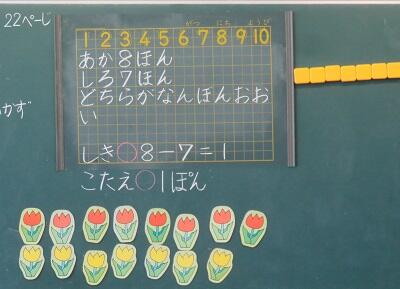 22ぺーじ
がつ にち ようび
1 2 3 4 5 6 7 8 9 10
あか8ほん
しろ7ほん
どちらがなんぼんおお
い
しき○8-7=1
こたえ○1ぽん
かず